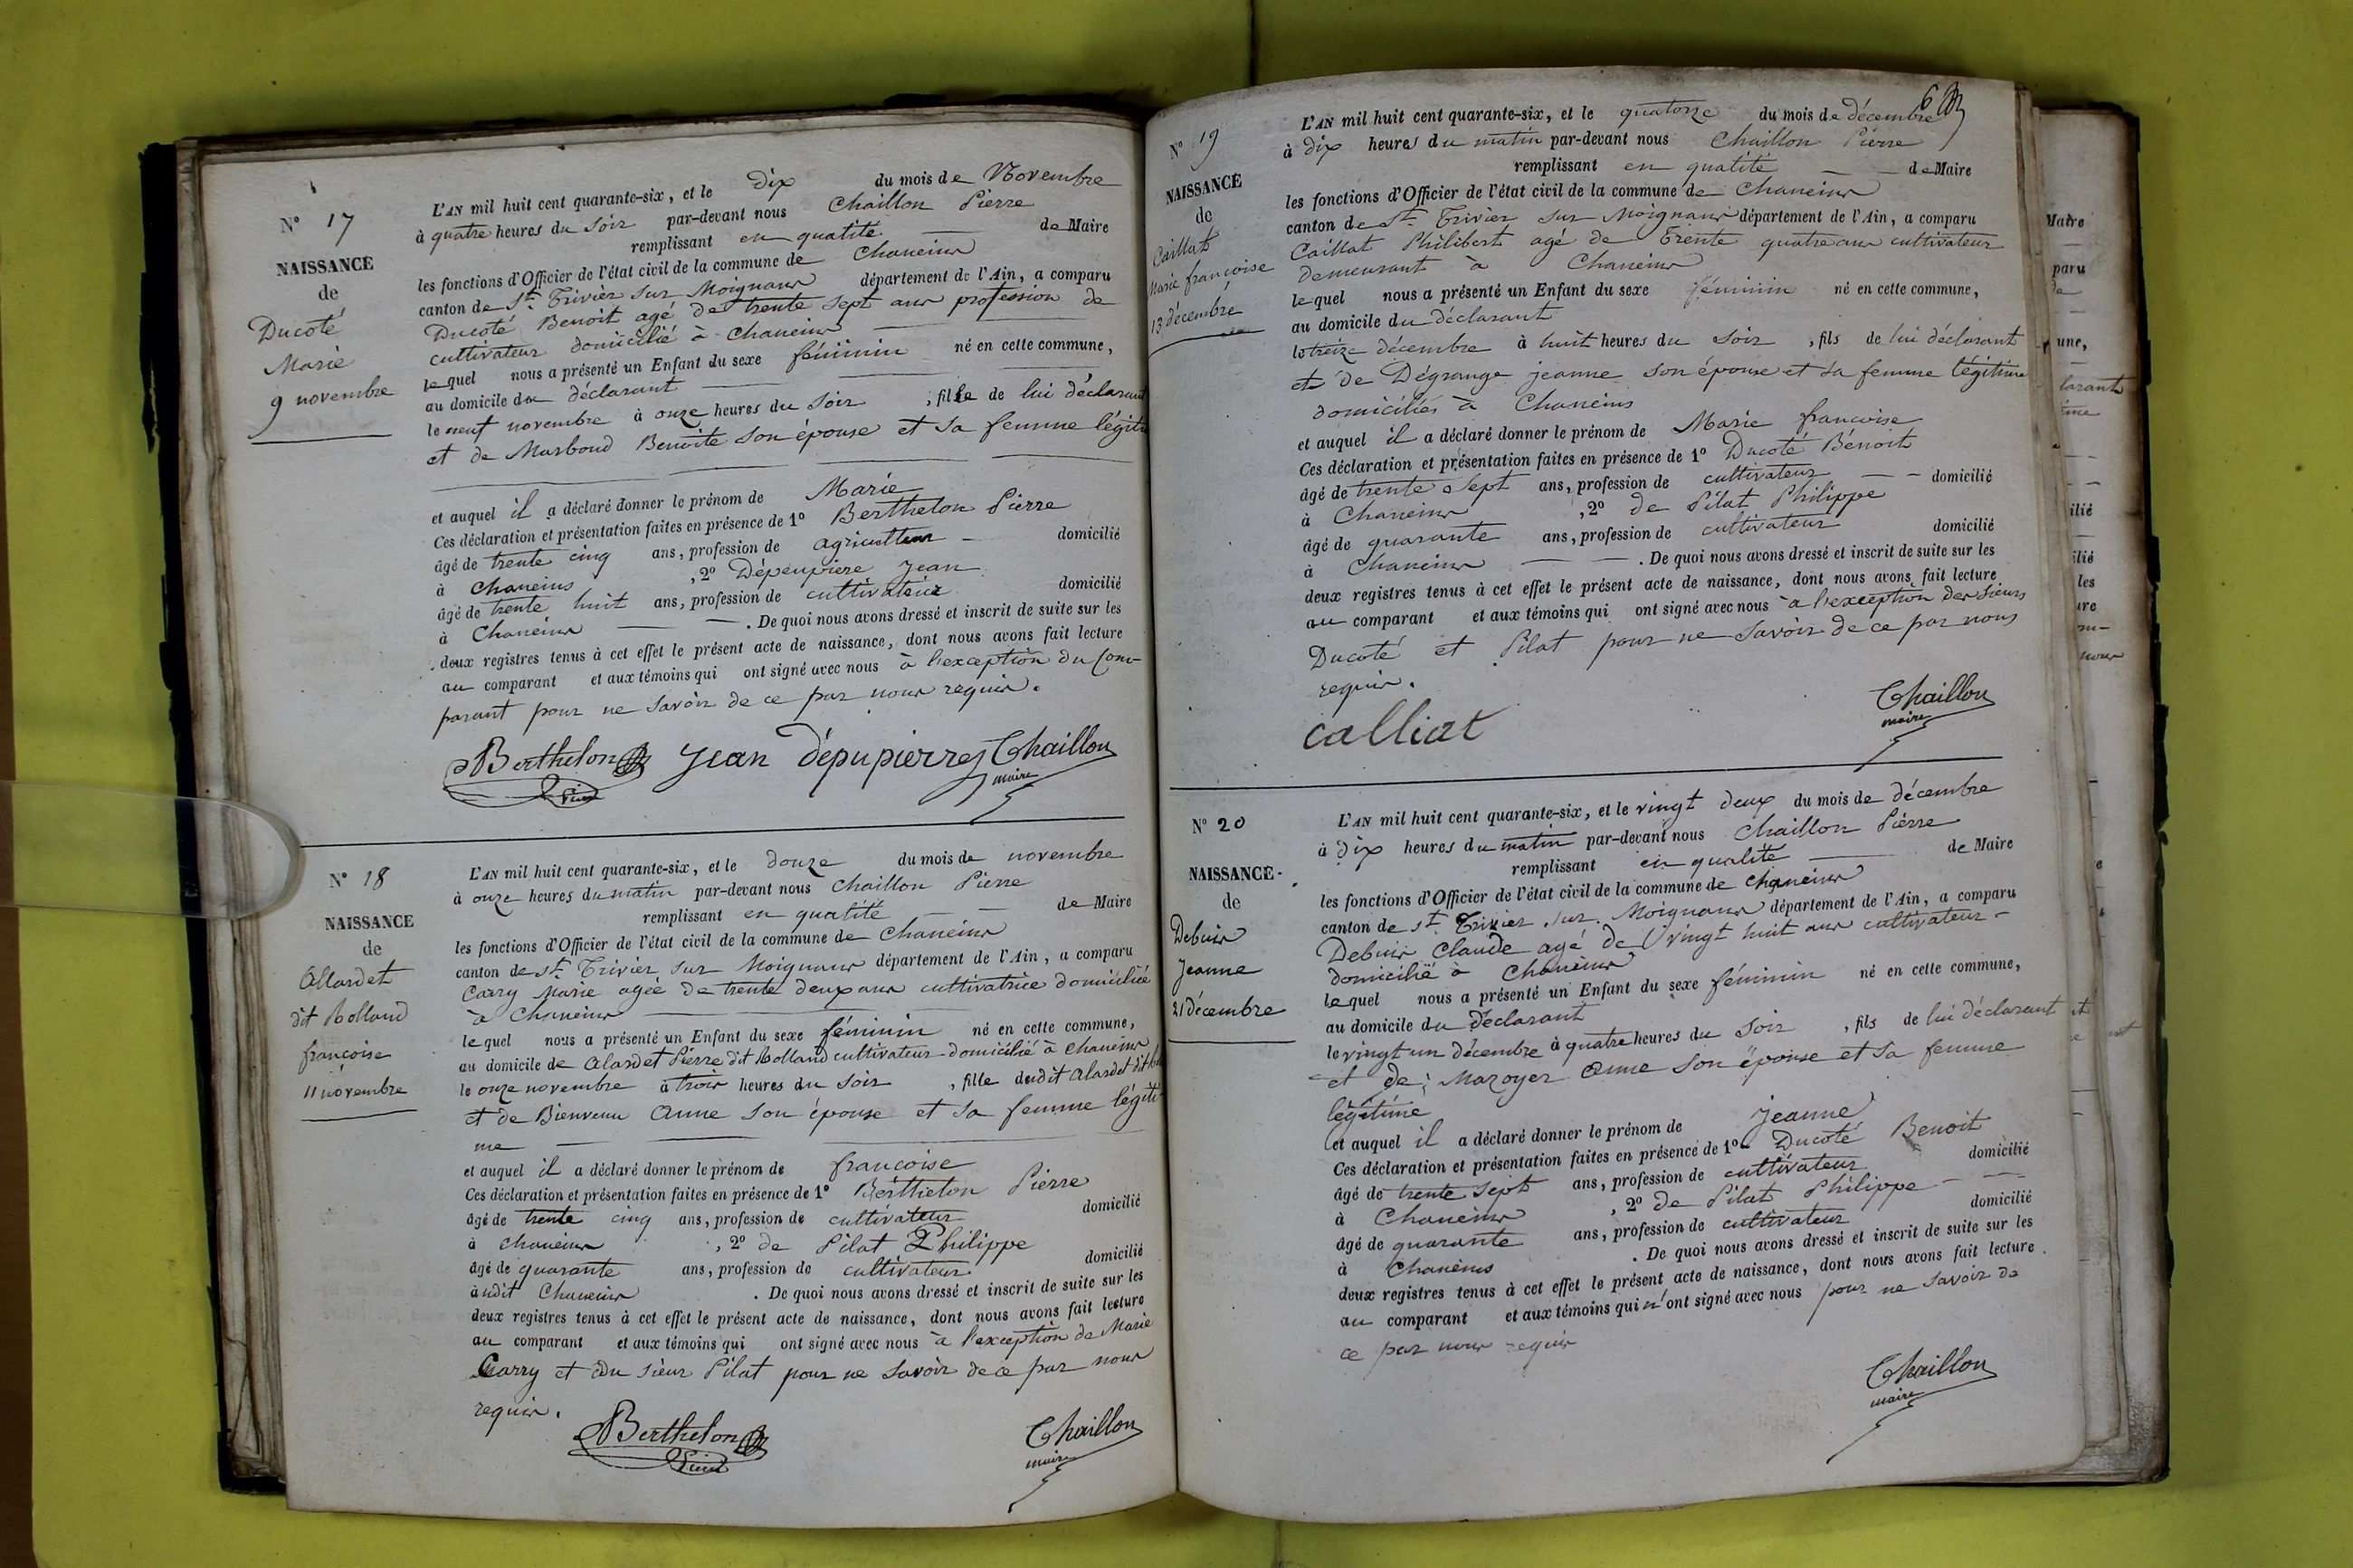 N° 17
NAISSANCE
de
Ducoté
Marie
9 novembre
L'AN mil huit cent quarante-six, et le dix du mois de Novembre
à quatre heures du Soir par-devant nous Chaillon Pierre
remplissant en qualité de Maire
les fonctions d'Officier de l'état civil de la commune de Chaneins
canton de St Trivier sur Moignans département de l'Ain, a comparu
Ducoté Benoit agé de trente sept ans profession de
cultivateur domicilié à Chaneins
lequel nous a présenté un Enfant du sexe féminin né en cette commune,
au domicile du déclarant
le neuf novembre à onze heures du Soir , fille de lui déclarant
et de Marboud Benoite son épouse et sa femme légiti
et auquel il a déclaré donner le prénom de Marie
Ces déclaration et présentation faites en présence de 1° Berthelon Pierre
âgé de trente cinq ans, profession de agriculteur domicilié
à Chaneins , 2° Dépeupiere Jean
âgé de trente huit ans, profession de cultivateur domicilié
à Chaneins . De quoi nous avons dressé et inscrit de suite sur les
deux registres tenus à cet effet le présent acte de naissance, dont nous avons fait lecture
au comparant et aux témoins qui ont signé avec nous à l'exception du Com-
parant pour ne savoir de ce par nous requis.
Berthelon Jean dépupierres Chaillon
maire
N° 18
NAISSANCE
de
Allardet
dit Rolland
françoise
11 novembre
L'AN mil huit cent quarante-six, et le douze du mois de novembre
à onze heures du matin par-devant nous Chaillon Pierre
remplissant en qualité de Maire
les fonctions d'Officier de l'état civil de la commune de Chaneins
canton de St Trivier sur Moignans département de l'Ain, a comparu
Carry Marie agée de trente deux ans cultivatrice domiciliée
à Chaneins
lequel nous a présenté un Enfant du sexe féminin né en cette commune,
au domicile de Alardet Pierre dit Rolland cultivateur domicilié à Chaneins
le onze novembre à trois heures du Soir , fille dudit Alardet dit
et de Bienvenu Anne son épouse et sa femme légiti-
me
et auquel il a déclaré donner le prénom de françoise
Ces déclaration et présentation faites en présence de 1° Berthelon Pierre
âgé de trente cinq ans, profession de cultivateur domicilié
à chaneins , 2° de Pilat Philippe
âgé de quarante ans, profession de cultivateur domicilié
àudit Chaneins . De quoi nous avons dressé et inscrit de suite sur les
deux registres tenus à cet effet le présent acte de naissance, dont nous avons fait lecture
au comparant et aux témoins qui ont signé avec nous à l'exception de Marie
Carry et du sieur Pilat pour ne savoir de ce par nous
requis.
Berthelon Chaillon
maire
6
N° 19
NAISSANCE
de
Caillat
Marie françoise
13 decembre
L'AN mil huit cent quarante-six, et le quatorze du mois de décembre
à dix heures du matin par-devant nous Chaillon Pierre
remplissant en qualité de Maire
les fonctions d'Officier de l'état civil de la commune de Chaneins
canton de St Trivier sur Moignans département de l'Ain, a comparu
Caillat Philibert agé de Trente quatre ans cultivateur
demeurant à Chaneins
lequel nous a présenté un Enfant du sexe féminin né en cette commune,
au domicile du déclarant
le treize décembre à huit heures du Soir , fils de lui déclarant
et de Dégrange jeanne son épouse et sa femme légitime
domiciliés à Chaneins
et auquel il a déclaré donner le prénom de Marie françoise
Ces déclaration et présentation faites en présence de 1° Ducoté Bénoit
âgé de trente Sept ans, profession de cultivateur domicilié
à Chaneins , 2° de Pilat Philippe
âgé de quarante ans, profession de cultivateur domicilié
à Chaneins . De quoi nous avons dressé et inscrit de suite sur les
deux registres tenus à cet effet le présent acte de naissance, dont nous avons fait lecture
au comparant et aux témoins qui ont signé avec nous à l'exception des Sieurs
Ducoté et Pilat pour ne savoir de ce par nous
requis.
calliat Chaillon
maire
N° 20
NAISSANCE
de
Debuis
Jeanne
21 décembre
L'AN mil huit cent quarante-six, et le vingt deux du mois de décembre
à dix heures du matin par-devant nous Chaillon Pierre
remplissant en qualité de Maire
les fonctions d'Officier de l'état civil de la commune de chaneins
canton de St Trivier sur Moignans département de l'Ain, a comparu
Debuis Claude agé de vingt huit ans cultivateur
domicilié à Chaneins
lequel nous a présenté un Enfant du sexe féminin né en cette commune,
au domicile du Déclarant
le vingt un décembre à quatre heures du Soir , fils de lui déclarant
et de Mazoyer Anne son épouse et sa femme
légitime
et auquel il a déclaré donner le prénom de jeanne
Ces déclaration et présentation faites en présence de 1° Ducoté Benoit
âgé de trente Sept ans, profession de cultivateur domicilié
à Chaneins , 2° de Pilat Philippe
âgé de quarante ans, profession de cultivateur domicilié
à Chaneins . De quoi nous avons dressé et inscrit de suite sur les
deux registres tenus à cet effet le présent acte de naissance, dont nous avons fait lecture
au comparant et aux témoins qui n'ont signé avec nous pour ne savoir de
ce par nous requis
Chaillon
maire
Maire
paru
de
une,
larant
ilié
ilié
les
ure
nous